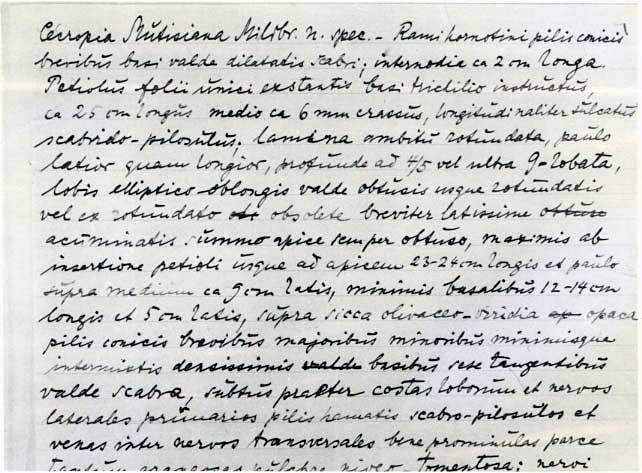 Cecropia Mutisiana Mildbr. n. spec. – Rami hornotini pilis conicis
brevibus basi valde dilatatis scabri; internodia ca 2 cm longa.
Petiolus folii unici exstantis basi trichilio instructus,
ca 25 cm longus medio ca 6 mm crassus, longitudinaliter sulcatus
scabrido-pilosulus; lamina ambitu rotundata, paulo
latior quam longior, profunde ad 4/5 vel ultra 9-lobata,
lobis elliptico-oblongis valde obtusis usque rotundatis
vel ex rotundato obsolete breviter latissime obtuse
acuminatis summo apice semper obtuso, maximis ab
insertione petioli usque ad apicem 23-24 cm longis et paulo
supra medium ca 9 cm latis, minimis basalibus 12-14 cm
longis et 5 cm latis, supra sicca olivaceo-viridia opaca
pilis conicis brevibus majoribus minoribus minimisque
intermixtis densissimis valde basibus sese tangentibus
valde scabra, subtus praeter costas loborum et nervos
laterales primarios pilis hamatis scabro-pilosulos et
venas inter nervos transversales bene prominulas parce
tomentosa: nervi